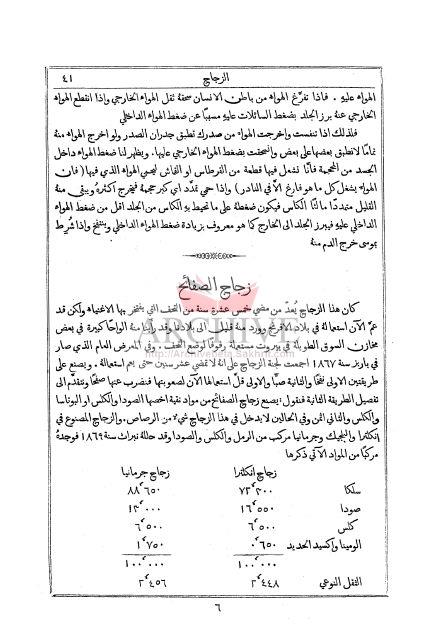 الزجاج ٤١
الهواء عليهِ . فاذا تفرَّغ الهواء من باطن الانسان سحقهُ ثقل الهواء الخارجي واذا انقطع الهواء
الخارجي عنهُ برز الجلد بضغط السائلات عليهِ مسببًا عن ضغط الهواء الداخلي
فلذلك اذا تنفست واخرجت الهواء من صدرك تطبق جدران الصدر ولو اخرج الهواء منهُ
تمامًا لانطبق بعضها على بعض وانسحقت بضغط الهواء الخارجي عليها. ويظهر لنا ضغط الهواء داخل
الجسد من المحجمة فأنَّا نشعل فيها قطعة من القرطاس او القاش ليحمي الهواء الذي فيها (فان
الهواء يشغل كل ما هو فارغ الاَّ في النادر) واذا حمي تمدَّد اي كبر حجمهُ فيخرج اكثرهُ ويبقى منهُ
القليل متمددًا مالئًا الكاس فيكون ضغطهُ على ما تحيط بهِ الكاس من الجلد اقل من ضغط الهواء
الداخلي عليهِ فيبرز الجلد الى الخارج كما هو معروف بزيادة ضغط الهواء الداخلي وينتفخ واذا شُرِط
بموسى خرج الدم منهُ
زجاج الصفائح
كان هذا الزجاج يُعدّ من مضي خمس عشرة سنة من التحف التي يتفخر بها الاغنياء ولكن قد
عمَّ الآن استعمالهُ في بلاد الافرنج وورد منهُ قليل الى بلادنا وقد راينا منهُ الواحًا كبيرة في بعض
مخازن السوق الطويلة في بيروت مستعملة رفوفًا لوضع التحف . وفي المعرض العام الذي صار
ARCHIVE
http://Archivebeta.Sakhrit.com
في باريز سنة ١٨٦٧ اجمعت لجنة الزجاج على انهُ لا تمضي عشر سنين حتى يعم استعمالهُ . ويصنع على
طريقتين الاولى نفخًا والثانية صبًا والاولى قلَّ استعمالها الآن لصعوبتها فنضرب عنها صفحًا ونتقدَّم الى
تفصيل الطريقة الثانية فنقول: يصنع زجاج الصفائح من مواد نقية اخصها الصودا والكلس او البوتاسا
والكلس والثاني اثمن وفي الحالين لا يدخل في هذا الزجاج شيءٌ من الرصاص. والزجاج المصنوع في
انكلترا والبلجيك وجرمانيا مركب من الرمل والكلس والصودا وقد حللهُ بنراث سنة ١٨٦٩ فوجدهُ
مركبًا من المواد الآتي ذكرها
زجاج انكلترا زجاج جرمانيا
سلكا ٧٦٬٣٠٠ ٨٨٬٦٥٠
صودا ١٦٬٥٥٠ ١٣٬٠٠٠
كلس ٦٬٥٠٠ ٦٬٥٠٠
الومينا واكسيد الحديد ٠٬٦٥٠ ١٬٧٥٠
١٠٠٬٠٠٠ ١٠٠٬٠٠٠
الثقل النوعي ٢٬٤٤٨ ٢٬٤٥٦
٦